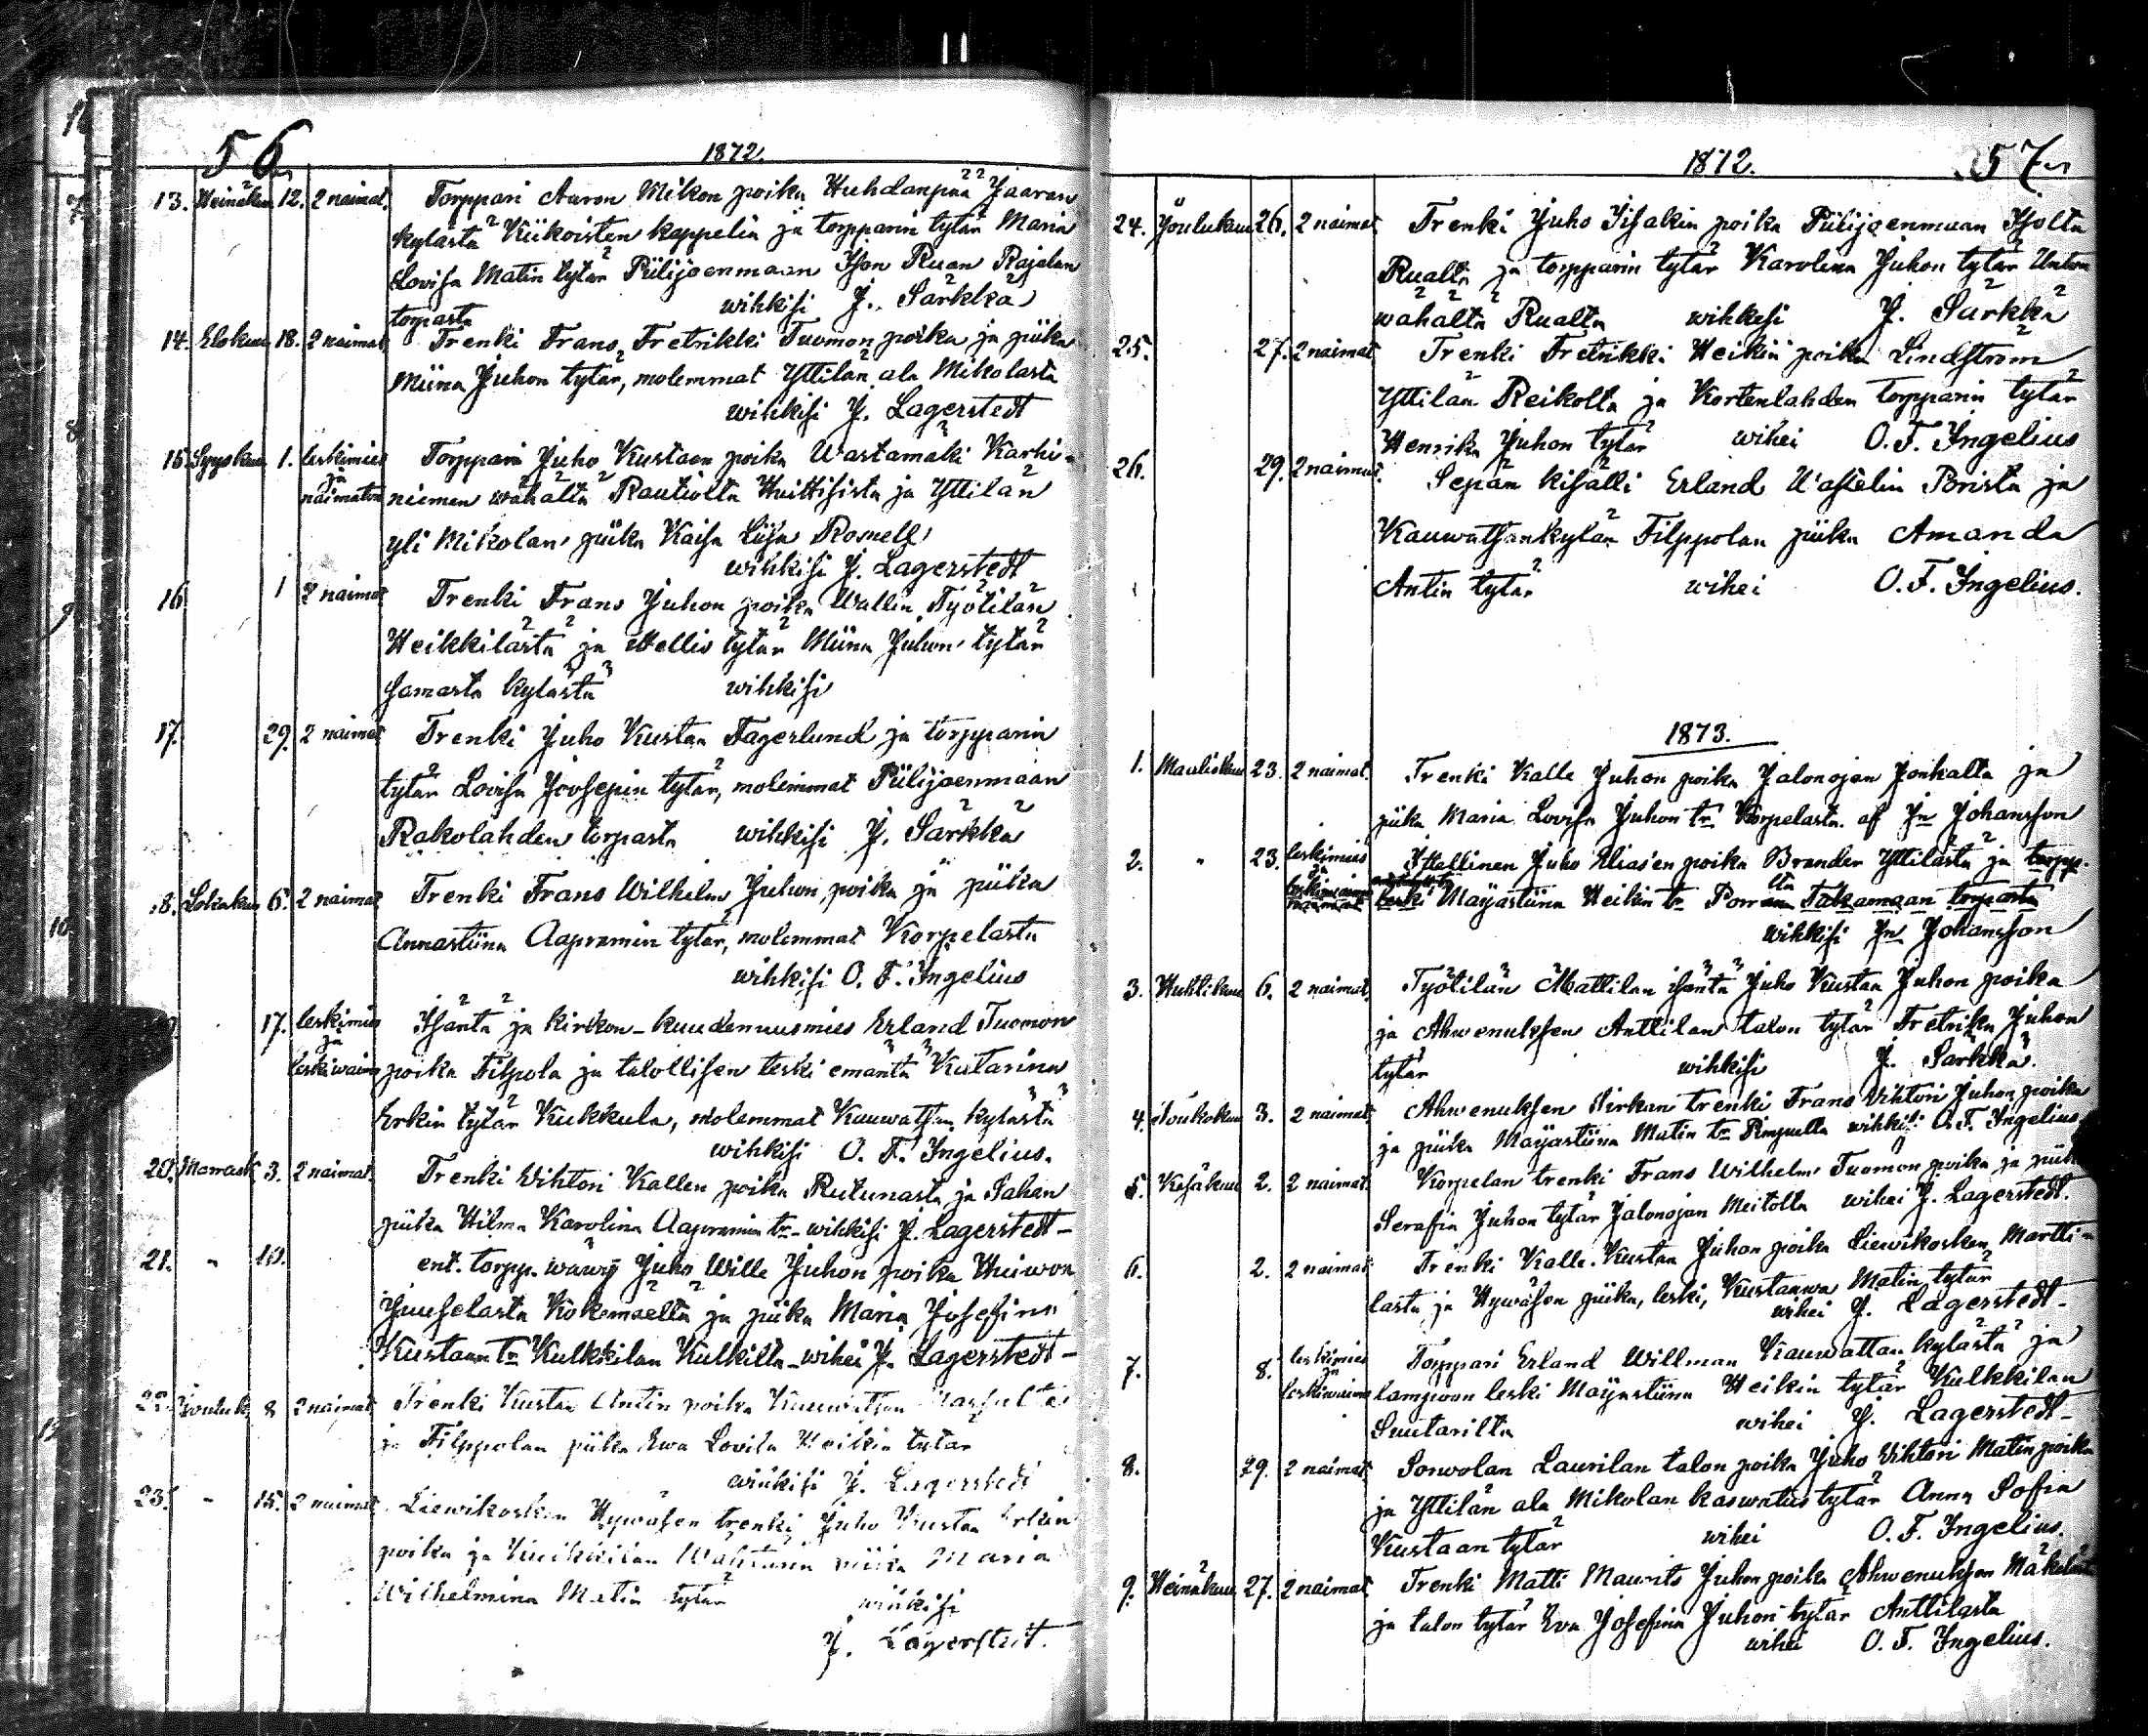 56
1872.
13. Heinäkuu 12. 2 naimat. Torppari Aaron Mikon poika Huhdanpää Jaaran
kylästä Kiikoisten kappelia ja torpparin tytär Maria
Lovisa Matin tytär Piilijoenmaan Ison Ruan Rajalan
torpasta wihkisi J. Särkkä
14. Elokuu 18. 2 naimat Trenki Frans Fretrikki Tuomon poika ja piika
Miina Juhon tytär, molemmat Yttilän ala Mikolasta
wihkisi J. Lagerstedt
15. Syyskuu 1. leskimies Torppari Juho Kustaan poika Wastamäki Karhi-
ja
naimaton niemen wähältä Rautiolta Huittisista ja Yttilän
yli Mikolan piika Kaisa Liisa Rosnell
wihkisi J. Lagerstedt
16 1 2 naimat Trenki Frans Juhon poika Wallin Työtilän
Heikkilästä ja itellis tytär Miina Juhon tytär
samasta kylästä wihkisi
17. 29. 2 naimat Trenki Juho Kustaa Fagerlund ja torpparin
tytär Lovisa Joosepin tytär, molemmat Piilijoenmaan
Rakolahden torpasta wihkisi J. Särkkä
18. Lokakuu 6. 2 naimat Trenki Frans Wilhelm Juhon poika ja piika
Annastiina Aapramin tytär, molemmat Korpelasta
wihkisi O. F. Ingelius
17. leskimies Isäntä ja kirkon-kuudennusmies Erland Tuomon
ja
leskiwaimo poika Filpola ja talollisen leski emäntä Katarina
Erkin tytär Kukkula, molemmat Kauwatsan kylästä
wihkisi O. F. Ingelius.
20. Marrask 3. 2 naimat. Trenki Wihtori Kallen poika Rutunasta ja Sahan
piika Hilma Karolina Aapramin tr wihkisi J. Lagerstedt-
21. " 10. ent. torpp. wäwy Juho Wille Juhon poika Huiwon
Juuselasta Kokemäeltä ja piika Maria Josefina
Kustaan tr Kulkkilan Kulkilta wihei J. Lagerstedt-
22. Jouluk 8 2 naimat Trenki Kustaa Antin poika Kauwatsan
ja Filppolan piika Ewa Lovisa Heikin tytär
wihkisi J. Lagerstedt
23. " 15. 2 naimat. Liewikosken Hywäsen trenki Juho Kustaa Erkin
poika ja piika Maria
Wilhelmina Matin tytär wihkisi
J. Lagerstedt.
57
1872.
24. Joulukuu 26. 2 naimat Trenki Juho Iisakin poika Piilijoenmaan Isolta
Rualta ja torpparin tytär Karolina Juhon tytär
wähältä Rualta wihkesi J. Särkkä
25. 27. 2 naimat Trenki Fretrikki Heikin poika Lindström
Yttilän Reikolta ja Kortenlahden torpparin tytär
Henrika Juhon tytär wihei O. F. Ingelius
26. 29. 2 naimat. Sepän kisälli Erland Brista ja
Kauwatsankylän Filppolan piika Amanda
Antin tytär wihei O. F. Ingelius.
1873.
1. Maalisku 23. 2 naimat. Trenki Kalle Juhon poika Jalonojan Jonkalta ja
piika Maria Lovisa Juhon tr Korpelasta. af Jn Johansson
2. " 23. leskimies Itellinen Juho Elias'en poika Brander Yttilästä ja torpp.
leski Maijastiina Heikin tr Takamaan torpasta
wihkisi Jn Johansson
3. Huhtikuu 6. 2 naimat. Työtilän Mattilan isäntä Juho Kustaa Juhon poika
ja Ahwenuksen Anttilan talon tytär Fretrika Juhon
tytär wihkisi J. Särkkä.
4. Toukokuu 3. 2 naimat. Ahwenuksen Pirkan trenki Frans Vihtori Juhon poika
ja piika Maijastiina Matin tr wihkisi O. F. Ingelius
5. Kesäkuu 2. 2 naimat. Korpelan trenki Frans Wilhelm Tuomon poika ja piika
Serafia Juhon tytär Jalonojan Meitolta wihei J. Lagerstedt.
6. 2. 2 naimat Trenki Kalle Kustaa Juhon poika Liewikosken Martti-
lasta ja Hywäsen piika, leski, Kustaawa Matin tytär
wihei J. Lagerstedt-
7. 8. leskimies Torppari Erland Willman Kauwattan kylästä ja
ja
leskiwaimo lampwon leski Maijastiina Heikin tytär Kulkkilan
Suutarilta wihei J. Lagerstedt-
8. 29. 2 naimat Sonwolan Laurilan talon poika Juho Vihtori Matin poika
ja Yttilän ala Mikolan kaswatus tytär Anna Sofia
Kustaan tytär wihei O. F. Ingelius.
9. Heinäkuu 27. 2 naimat Trenki Matti Maurits Juhon poika Ahwenuksen Mäkelästä
ja talon tytär Eva Josefina Juhon tytär Anttilasta
wihei O. F. Ingelius.